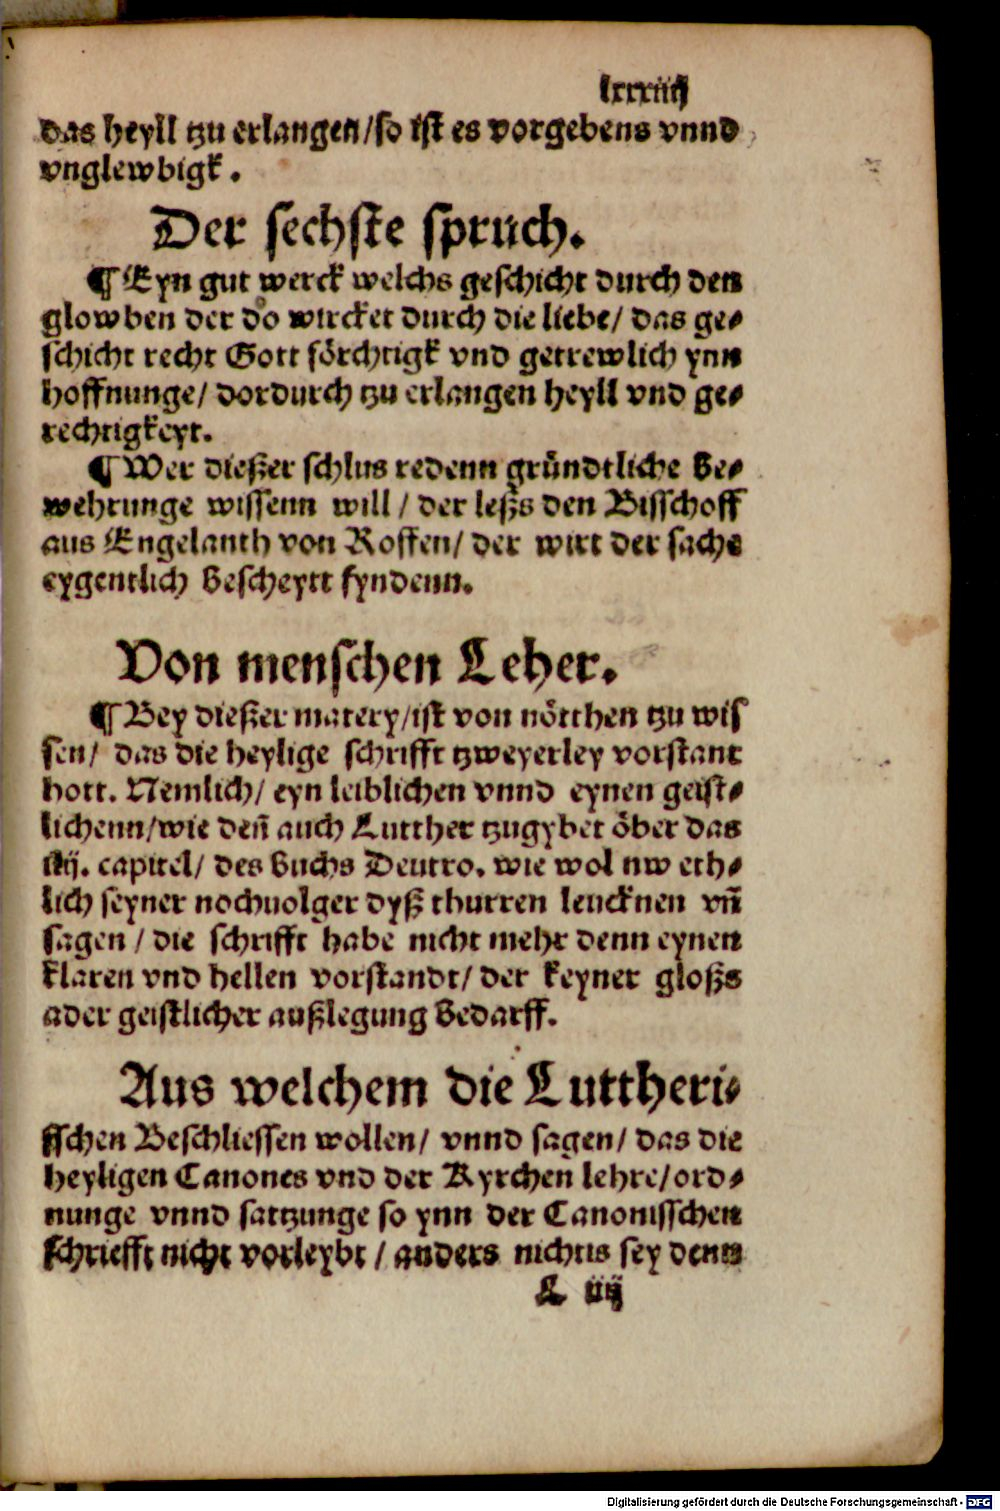 lxxxiiij
das heyll tzu erlangen/so ist es vorgebens vnnd
vnglewbigk.
Der sechste spruch.
¶ Eyn gut werck welchs geschicht durch den
glowben der do wircket durch die liebe/ das ge⸗
schicht recht Gott förchtigk vnd getrewlich ynn
hoffnunge/ dordurch tzu erlangen heyll vnd ge⸗
rechtigkeyt.
¶ Wer dießer schlus redenn gründtliche Be⸗
wehrunge wissenn will / der leßs den Bisschoff
aus Engelanth von Roffen/ der wirt der sache
eygentlich Bescheytt fyndenn.
Von menschen Leher.
¶ Bey dießer matery/ist von nötthen tzu wis
sen/ das die heylige schrifft tzweyerley vorstant
hott. Nemlich/ eyn leiblichen vnnd eynen geist⸗
lichenn/wie deñ auch Lutther tzugybet öber das
iij. capitel/ des Buchs Deutro. wie wol nw eth⸗
lich seyner nochuolger dyß thurren leucknen vñ
sagen / die schrifft habe nicht mehr denn eynen
klaren vnd hellen vorstandt/ der keyner gloßs
ader geistlicher außlegung Bedarff.
Aus welchem die Luttheri⸗
sschen Beschliessen wollen/ vnnd sagen/ das die
heyligen Canones vnd der Kyrchen lehre/ord⸗
nunge vnnd sattzunge so ynn der Canonisschen
schriefft nicht vorleybt / anders nichtis sey denn
L iij
Digitalisierung gefördert durch die Deutsche Forschungsgemeinschaft - DFG